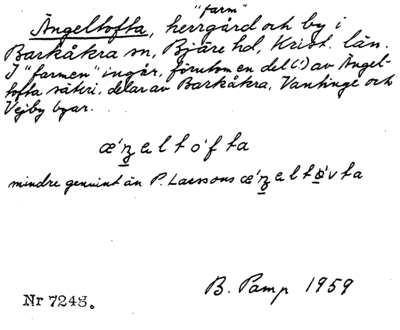 "farm"
Ängeltofta, herrgård och by i
Barkåkra sn, Bjäre hd, Krist. län.
I "farmen" ingår, förutom en del (!) av Ängel-
tofta säteri, delar av Barkåkra, Vantinge och
Vejby byar.
mindre genuint än P. Larssons
B. Pamp 1959
Nr 7248.